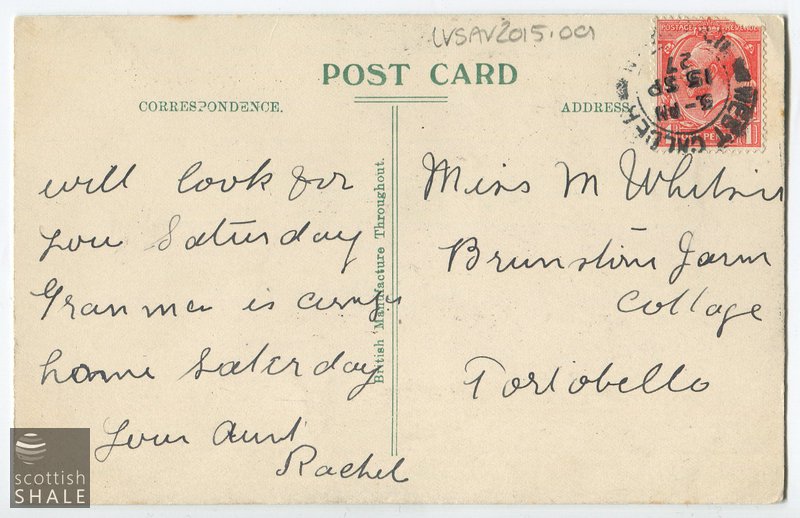 LVSAV2015.001
POST CARD
CORRESPONDENCE.
ADDRESS
POSTAGE REVENUE
WEST CALDER
5 - AM
15 SP
27
British Manufacture Throughout.
will look for
you Saturday
Granma is
home Saterday
your aunt
Rachel
Miss M
Brunstin Farm
Cottage
Portobello
scottish
SHALE